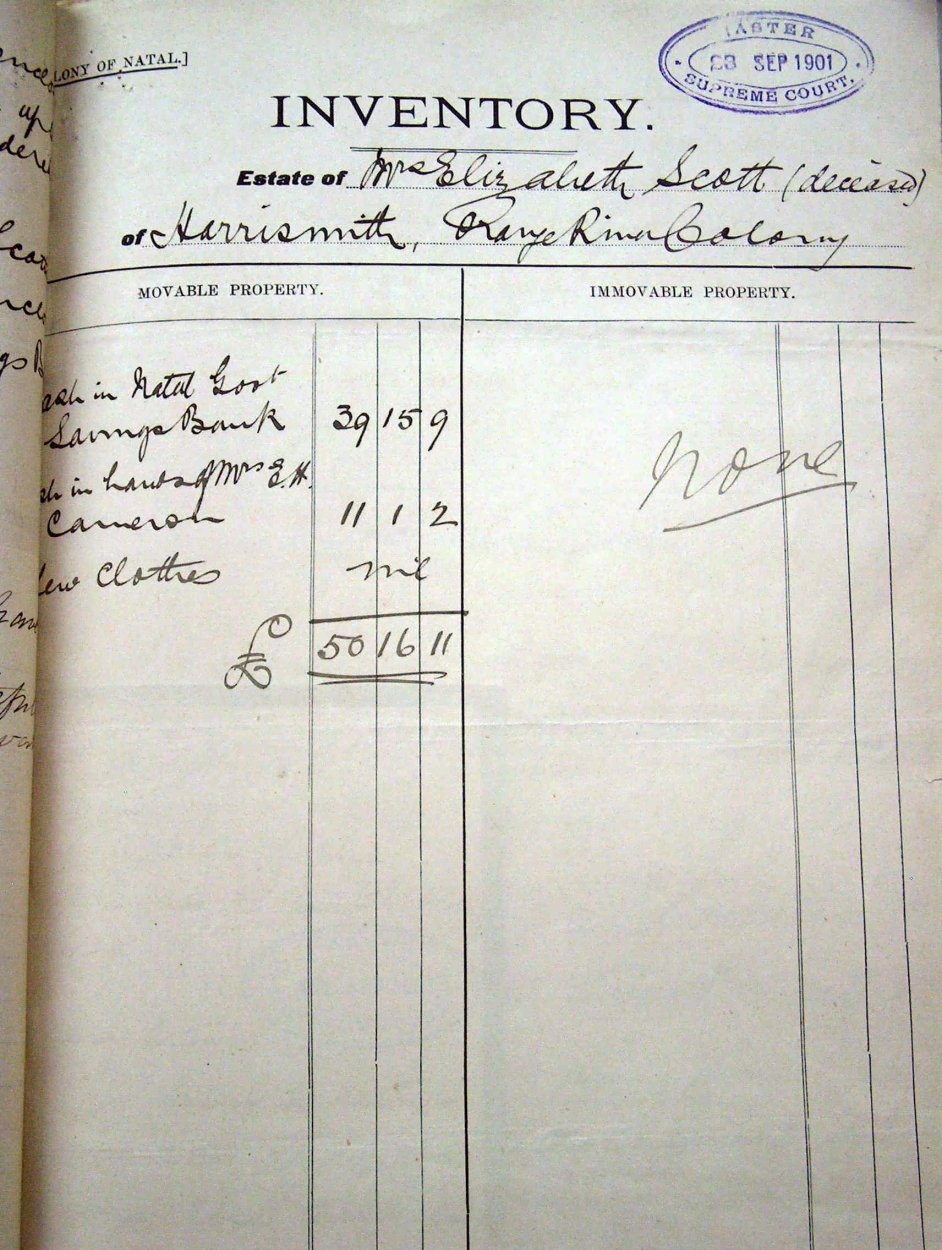 LONY OF NATAL.]
ASTER
23 SEP 1901
SUPREME COURT.
INVENTORY.
Estate of Mrs Elizabeth Scott (deceased)
of Harrismith, Orange River Colony
MOVABLE PROPERTY. IMMOVABLE PROPERTY.
ash in Natal Govt
Savings Bank 39 15 9
None
sh in hands of Mrs E.H.
Cameron 11 1 2
few Clothes nil
£ 50 16 11